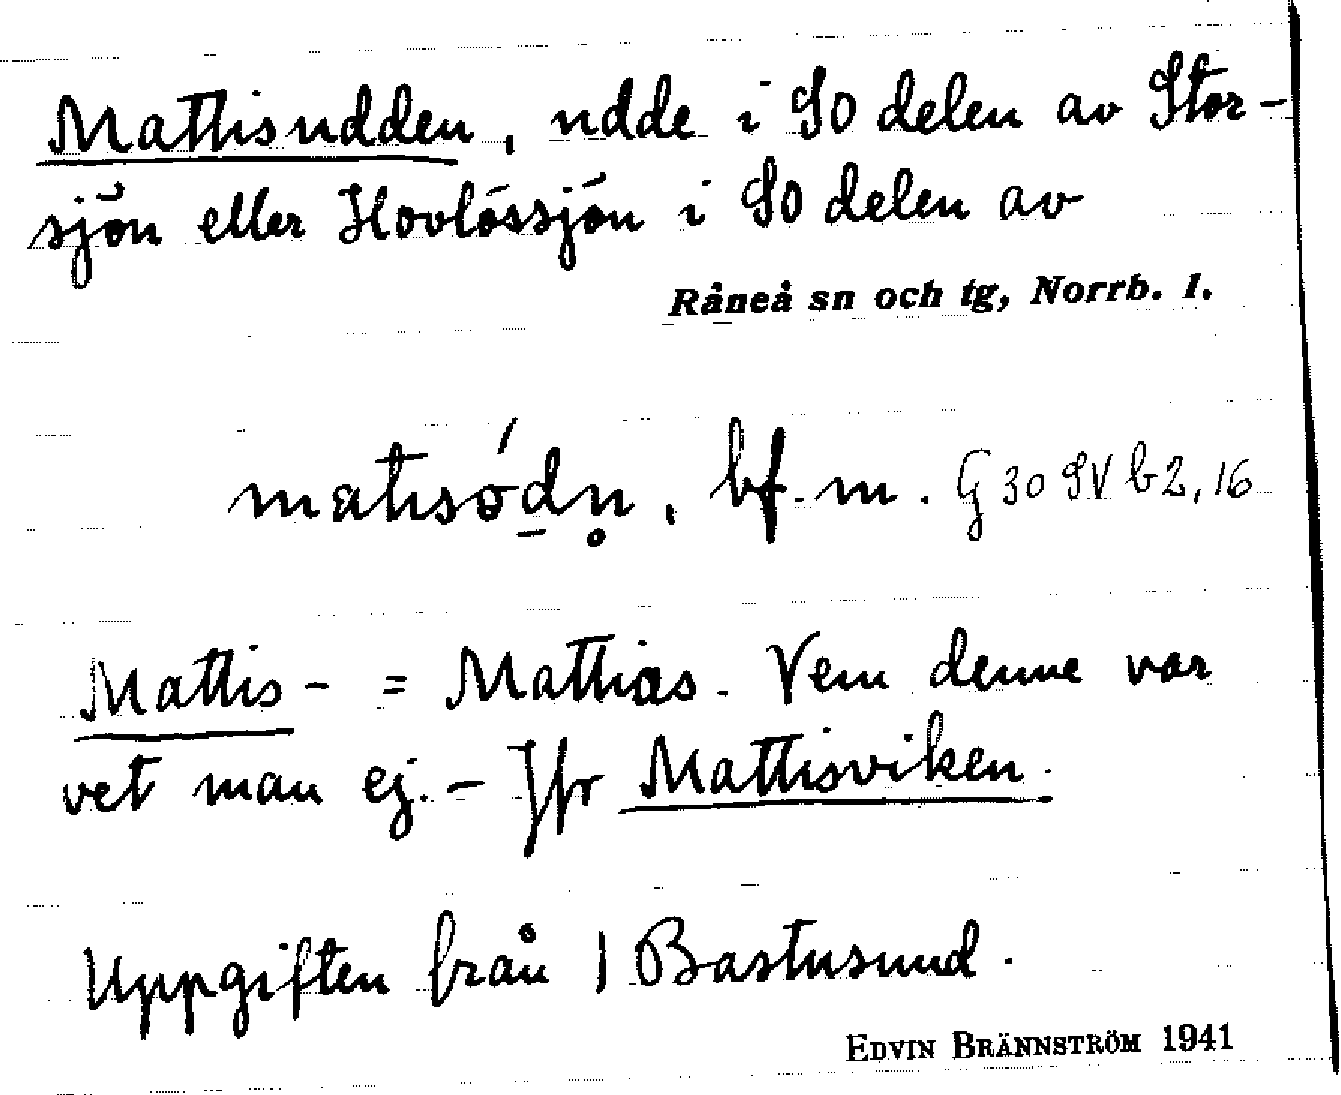 Mattisudden, udde i SO delen av Stor-
sjön eller Hovlössjön i SO delen av
Råneå sn och tg, Norrb. l.
matɩsódn̥, bf. m. G 30 SV b2,16
Mattis- = Mathias. Vem denne var
vet man ej. - Jfr Mattisviken.
Uppgiften från 1 Bastusund.
EDVIN BRÄNNSTRÖM 1941